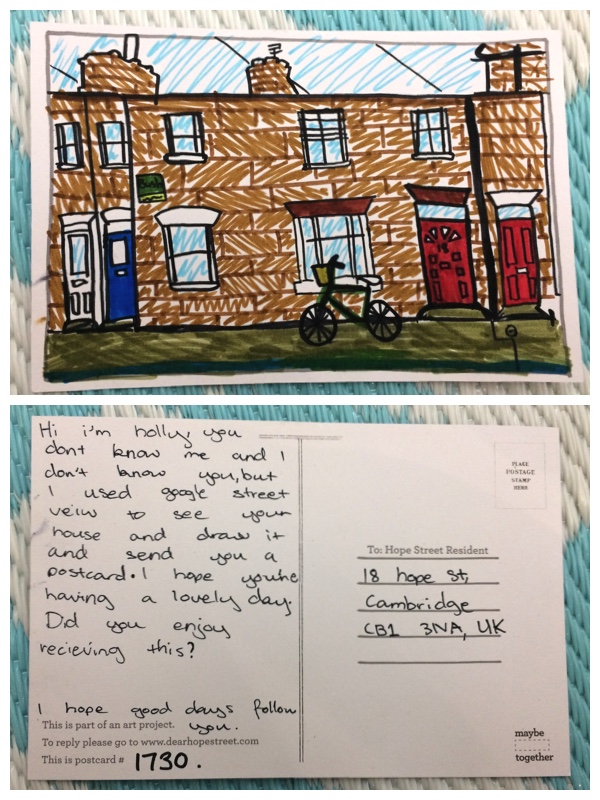 18
Hi i'm holly, you
dont know me and I
don't know you, but
I used google street
veiw to see your
house and draw it
and send you a
postcard. I hope you're
having a lovely day.
Did you enjoy
recieving this?
I hope good days follow
you.
This is part of an art project.
To reply please go to www.dearhopestreet.com
This is postcard # 1730.
PLACE
POSTAGE
STAMP
HERE
To: Hope Street Resident
18 hope st,
Cambridge
CB1 3NA, UK
maybe
together